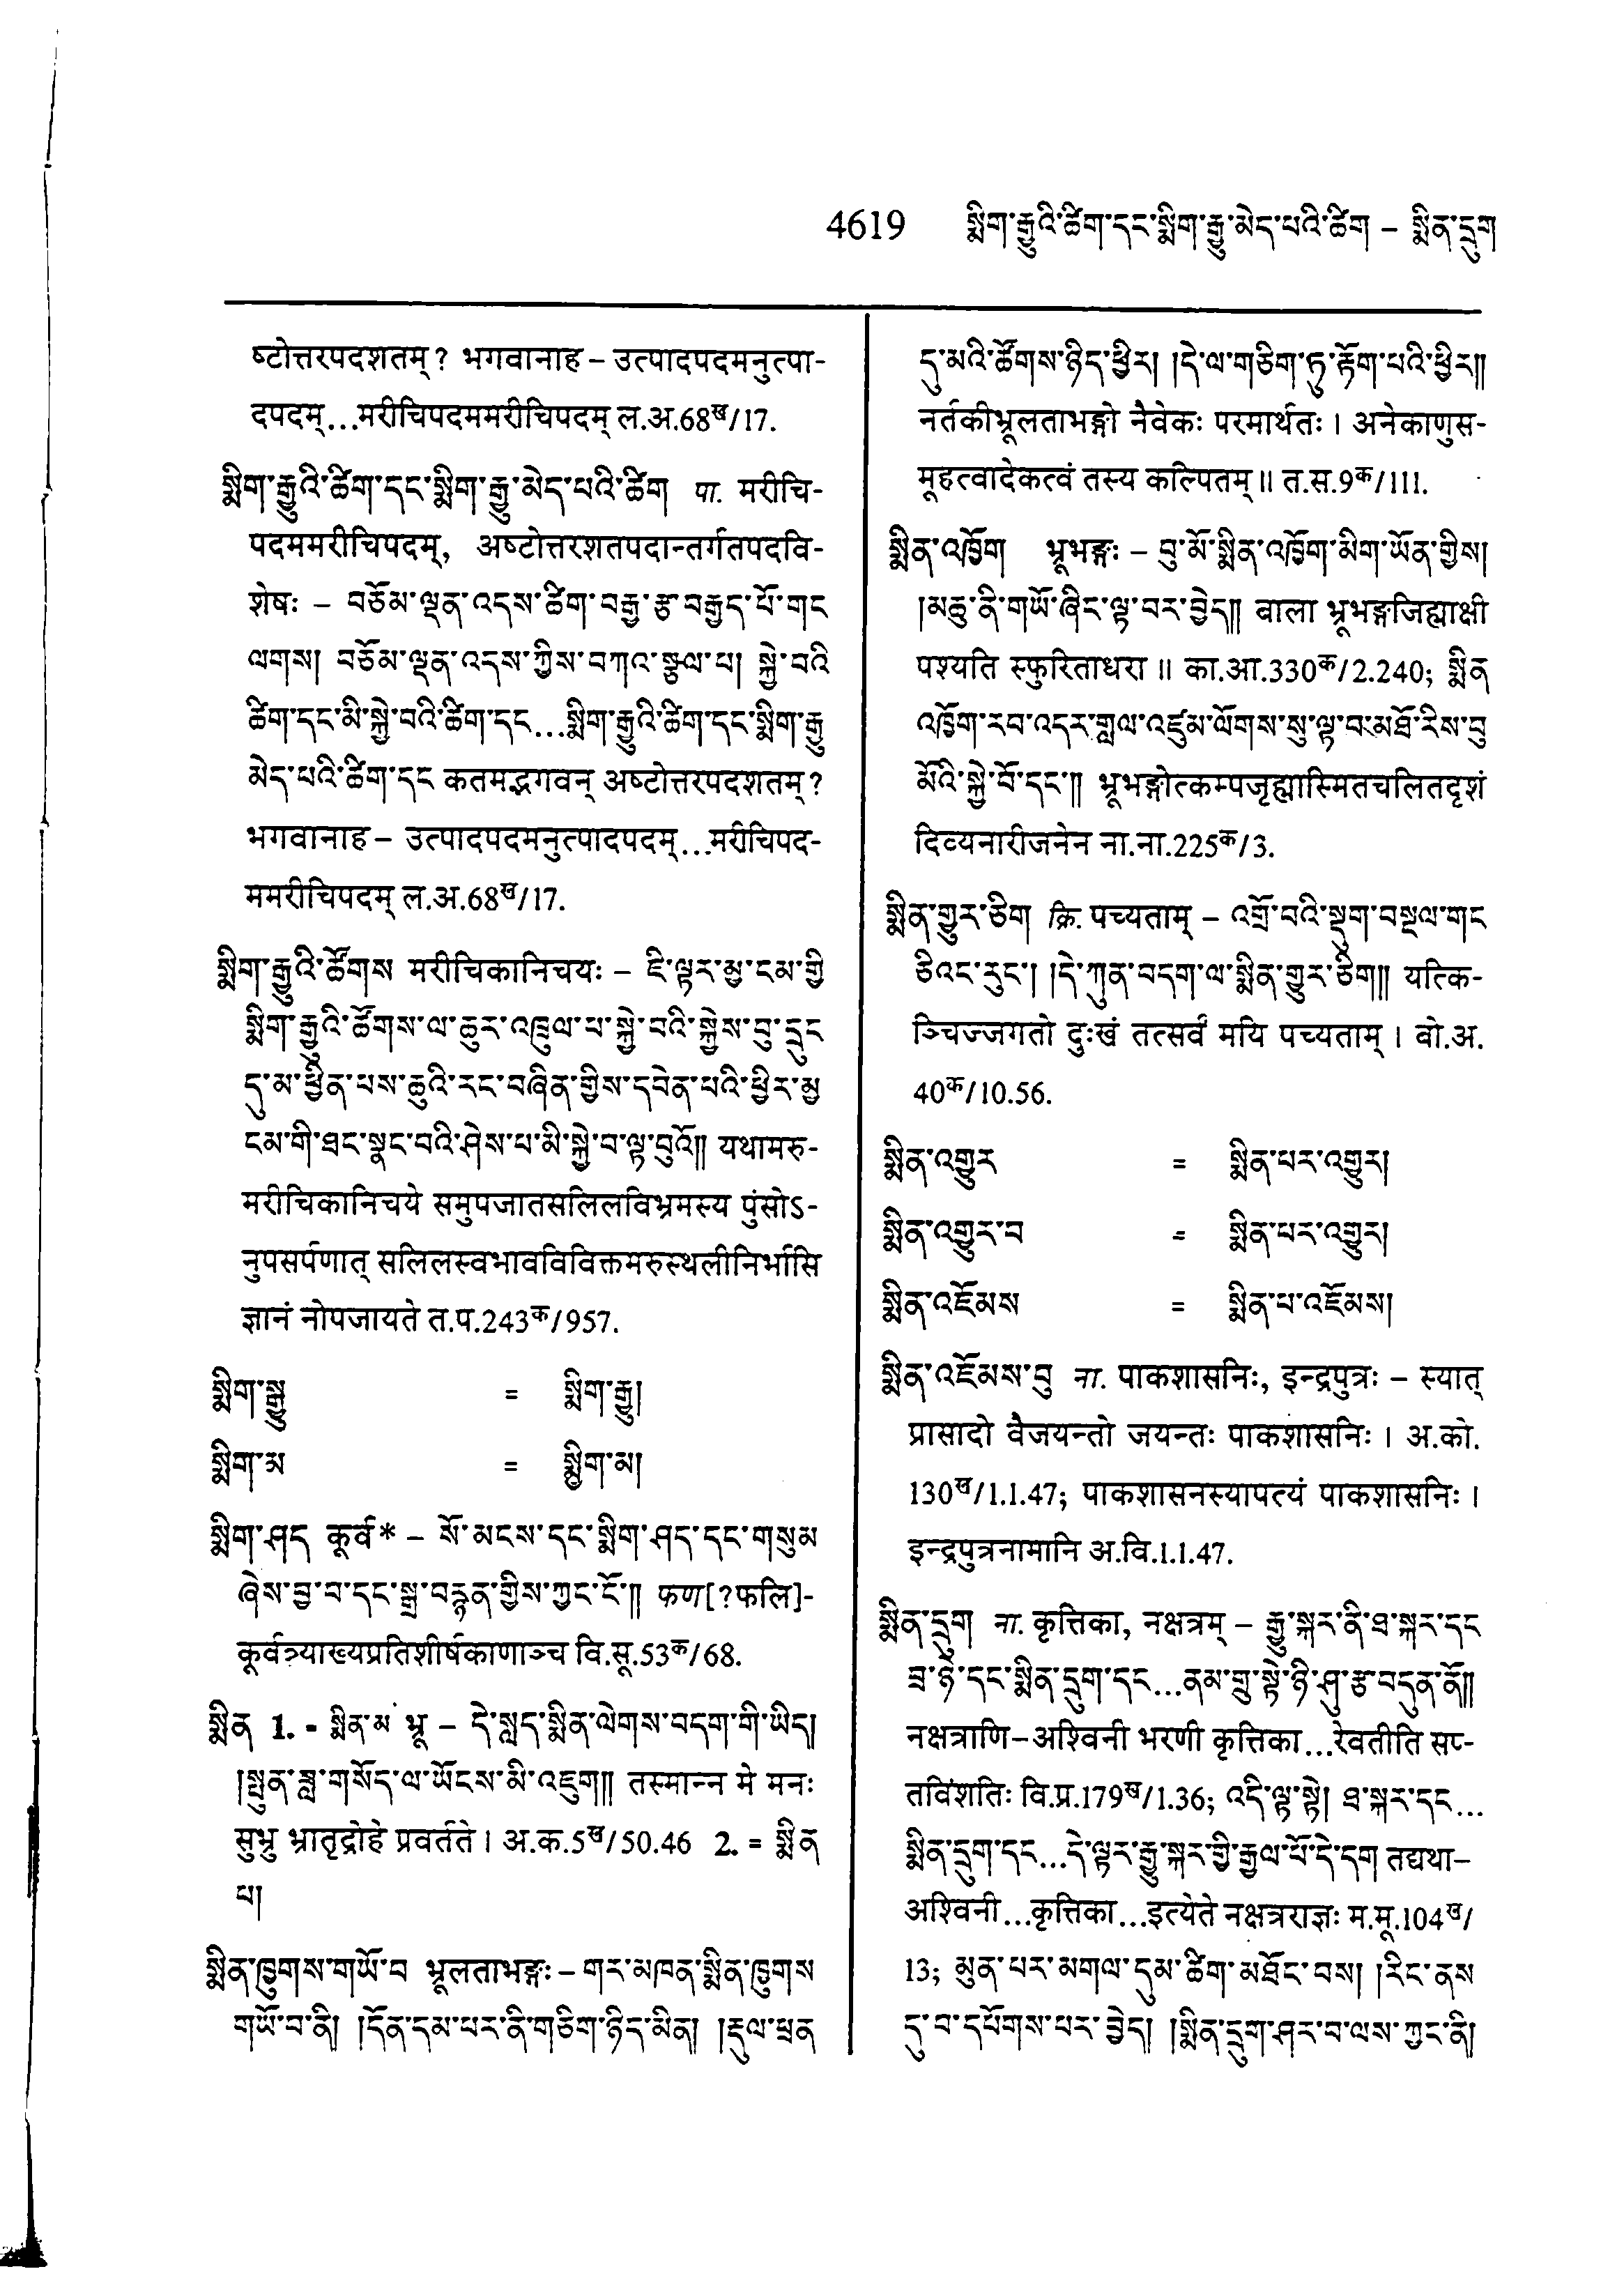 4619 སྨིག་རྒྱུའི་ཚིག་དང་སྨིག་རྒྱུ་མེད་པའི་ཚིག – སྨིན་དྲུག
ष्टोत्तरपदशतम् ? भगवानाह – उत्पादपदमनुत्पा-
दपदम्...मरीचिपदममरीचिपदम् ल.अ.68ख/17.
སྨིག་རྒྱུའི་ཚིག་དང་སྨིག་རྒྱུ་མེད་པའི་ཚིག पा. मरीचि-
पदममरीचिपदम्, अष्टोत्तरशतपदान्तर्गतपदवि-
शेषः – བཅོམ་ལྡན་འདས་ཚིག་བརྒྱ་རྩ་བརྒྱད་པོ་གང
ལགས། བཅོམ་ལྡན་འདས་ཀྱིས་བཀའ་སྩལ་པ། སྐྱེ་བའི
ཚིག་དང་མི་སྐྱེ་བའི་ཚིག་དང...སྨིག་རྒྱུའི་ཚིག་དང་སྨིག་རྒྱུ
མེད་པའི་ཚིག་དང कतमद्भगवन् अष्टोत्तरपदशतम् ?
भगवानाह – उत्पादपदमनुत्पादपदम्...मरीचिपद-
ममरीचिपदम् ल.अ.68ख/17.
སྨིག་རྒྱུའི་ཚོགས मरीचिकानिचयः – ཇི་ལྟར་མྱ་ངམ་གྱི
སྨིག་རྒྱུའི་ཚོགས་ལ་ཆུར་འཁྲུལ་པ་སྐྱེ་བའི་སྐྱེས་བུ་དྲུང
དུ་མ་ཕྱིན་པས་ཆུའི་རང་བཞིན་གྱིས་དབེན་པའི་ཕྱིར་མྱ
ངམ་གི་ཐང་སྣང་བའི་ཤེས་པ་མི་སྐྱེ་བ་ལྟ་བུའོ།། यथामरु-
मरीचिकानिचये समुपजातसलिलविभ्रमस्य पुंसोऽ-
नुपसर्पणात् सलिलस्वभावविविक्तमरुस्थलीनिर्भासि
ज्ञानं नोपजायते त.प.243क/957.
སྨིག་སྒྱུ = སྨིག་རྒྱུ།
སྨིག་མ = སྨྱིག་མ།
སྨིག་ཤད कूर्च* – སོ་མངས་དང་སྨིག་ཤད་དང་གསུམ
ཞེས་བྱ་བ་དང་སྒྲ་བརྙན་གྱིས་ཀྱང་ངོ་།། फण[?फलि]-
कूर्चत्र्याख्यप्रतिशीर्षकाणाञ्च वि.सू.53क/68.
སྨིན 1. = སྨིན་མ भ्रू – དེ་སླད་སྨིན་ལེགས་བདག་གི་ཡིད།
།སྤུན་ཟླ་གསོད་ལ་ཡོངས་མི་འཇུག།། तस्मान्न मे मनः
सुभ्रु भ्रातृद्रोहे प्रवर्तते । अ.क.5ख/50.46 2. = སྨིན
པ།
སྨིན་ཁྱུགས་གཡོ་བ भ्रूलताभङ्गः – གར་མཁན་སྨིན་ཁྱུགས
གཡོ་བ་ནི། །དོན་དམ་པར་ནི་གཅིག་ཉིད་མིན། །རྡུལ་ཕྲན
དུ་མའི་ཚོགས་ཉིད་ཕྱིར། །དེ་ལ་གཅིག་ཏུ་རྟོག་པའི་ཕྱིར།།
नर्तकीभ्रूलताभङ्गो नैवेकः परमार्थतः । अनेकाणुस-
मूहत्वादेकत्वं तस्य कल्पितम् ॥ त.स.9क/111.
སྨིན་འཁྱོག भ्रूभङ्गः – བུ་མོ་སྨིན་འཁྱོག་མིག་ཡོན་གྱིས།
།མཆུ་ནི་གཡོ་ཞིང་ལྟ་བར་བྱེད།། बाला भ्रूभङ्गजिह्माक्षी
पश्यति स्फुरिताधरा ॥ का.आ.330क/2.240; སྨིན
འཁྱོག་རབ་འདར་གླལ་འཛུམ་ལོགས་སུ་ལྟ་བ་མཐོ་རིས་བུ
མོའི་སྐྱེ་བོ་དང་།། भ्रूभङ्गोत्कम्पजृह्मास्मितचलितदृशं
दिव्यनारीजनेन ना.ना.225क/3.
སྨིན་གྱུར་ཅིག क्रि. पच्यताम् – འགྲོ་བའི་སྡུག་བསྔལ་གང
ཅིའང་རུང་། །དེ་ཀུན་བདག་ལ་སྨིན་གྱུར་ཅིག།། यत्कि-
ञ्चिज्जगतो दुःखं तत्सर्वं मयि पच्यताम् । बो.अ.
40क/10.56.
སྨིན་འགྱུར = སྨིན་པར་འགྱུར།
སྨིན་འགྱུར་བ = སྨིན་པར་འགྱུར།
སྨིན་འཇོམས = སྨིན་པ་འཇོམས།
སྨིན་འཇོམས་བུ ना. पाकशासनिः, इन्द्रपुत्रः – स्यात्
प्रासादो वैजयन्तो जयन्तः पाकशासनिः । अ.को.
130ख/1.1.47; पाकशासनस्यापत्यं पाकशासनिः ।
इन्द्रपुत्रनामानि अ.वि.1.1.47.
སྨིན་དྲུག ना. कृत्तिका, नक्षत्रम् – རྒྱུ་སྐར་ནི་ཐ་སྐར་དང
བྲ་ཉེ་དང་སྨིན་དྲུག་དང...ནམ་གྲུ་སྟེ་ཉི་ཤུ་རྩ་བདུན་ནོ།།
नक्षत्राणि–अश्विनी भरणी कृत्तिका...रेवतीति सप्-
तविंशतिः वि.प्र.179ख/1.36; འདི་ལྟ་སྟེ། ཐ་སྐར་དང...
སྨིན་དྲུག་དང...དེ་ལྟར་རྒྱུ་སྐར་གྱི་རྒྱལ་པོ་དེ་དག तद्यथा–
अश्विनी...कृत्तिका...इत्येते नक्षत्रराज्ञः म.मू.104ख/
13; མུན་པར་མགལ་དུམ་ཚིག་མཐོང་བས། །རིང་ནས
དུ་བ་དཔོགས་པར་བྱེད། །སྨིན་དྲུག་ཤར་བ་ལས་ཀྱང་ནི།